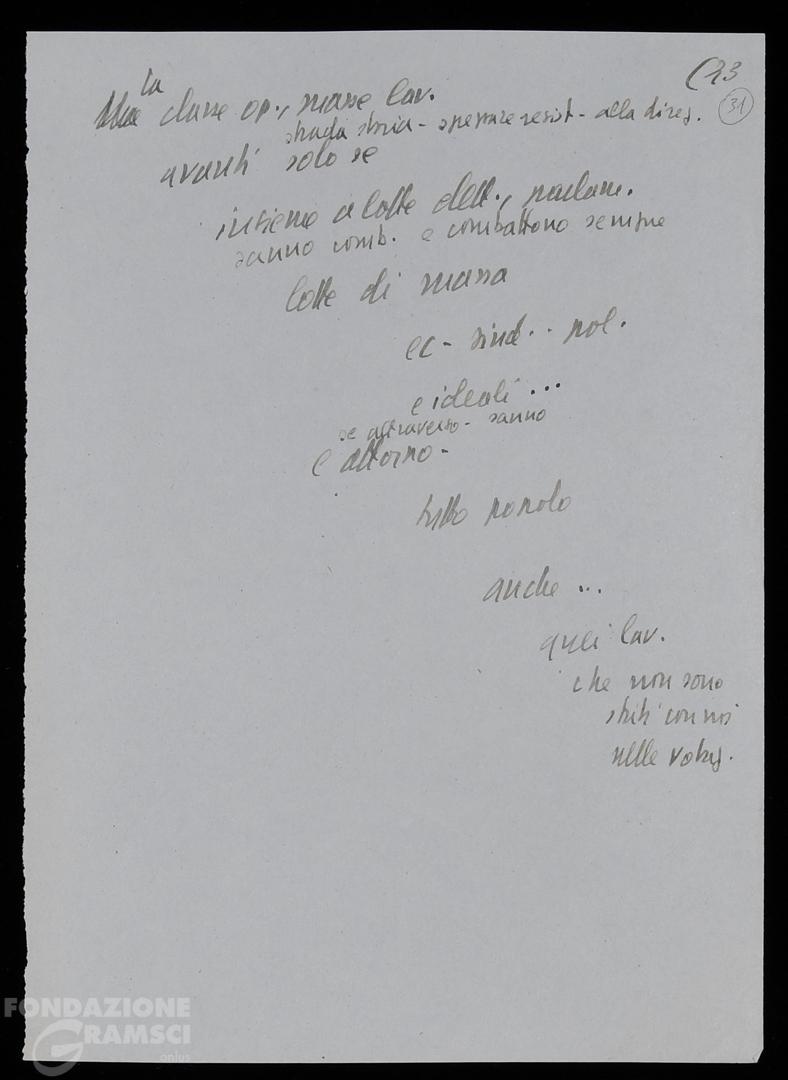 (23
31
la
classe op., masse lav.
strada storia - spezzare resist - alla direz.
avanti solo se
insieme a lotte elett., parlam.
sanno comb. e combattono sempre
lotte di massa
ec - sind.. pol.
e ideali...
se attraverso - sanno
e attorno -
tutto popolo
anche...
quei lav.
che non sono
stati con noi
nelle votaz.
FONDAZIONE
GRAMSCI
onlus